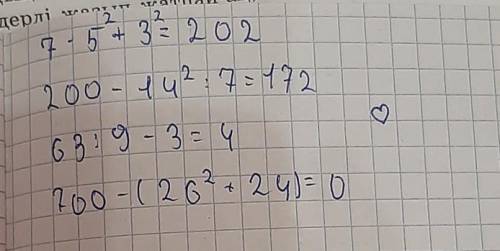 дерлі
7 · 5² + 3² = 202
200 - 14² : 7 = 172
63 : 9 - 3 = 4
700 - (26² + 24) = 0